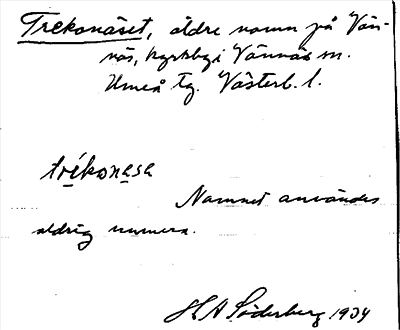 Trekonäset, äldre namn på Vän-
näs, kyrkby i Vännäs sn.
Umeå tg. Västerb. l.
trékonəsə
Namnet användes
aldrig numera.
H A Söderberg 1934